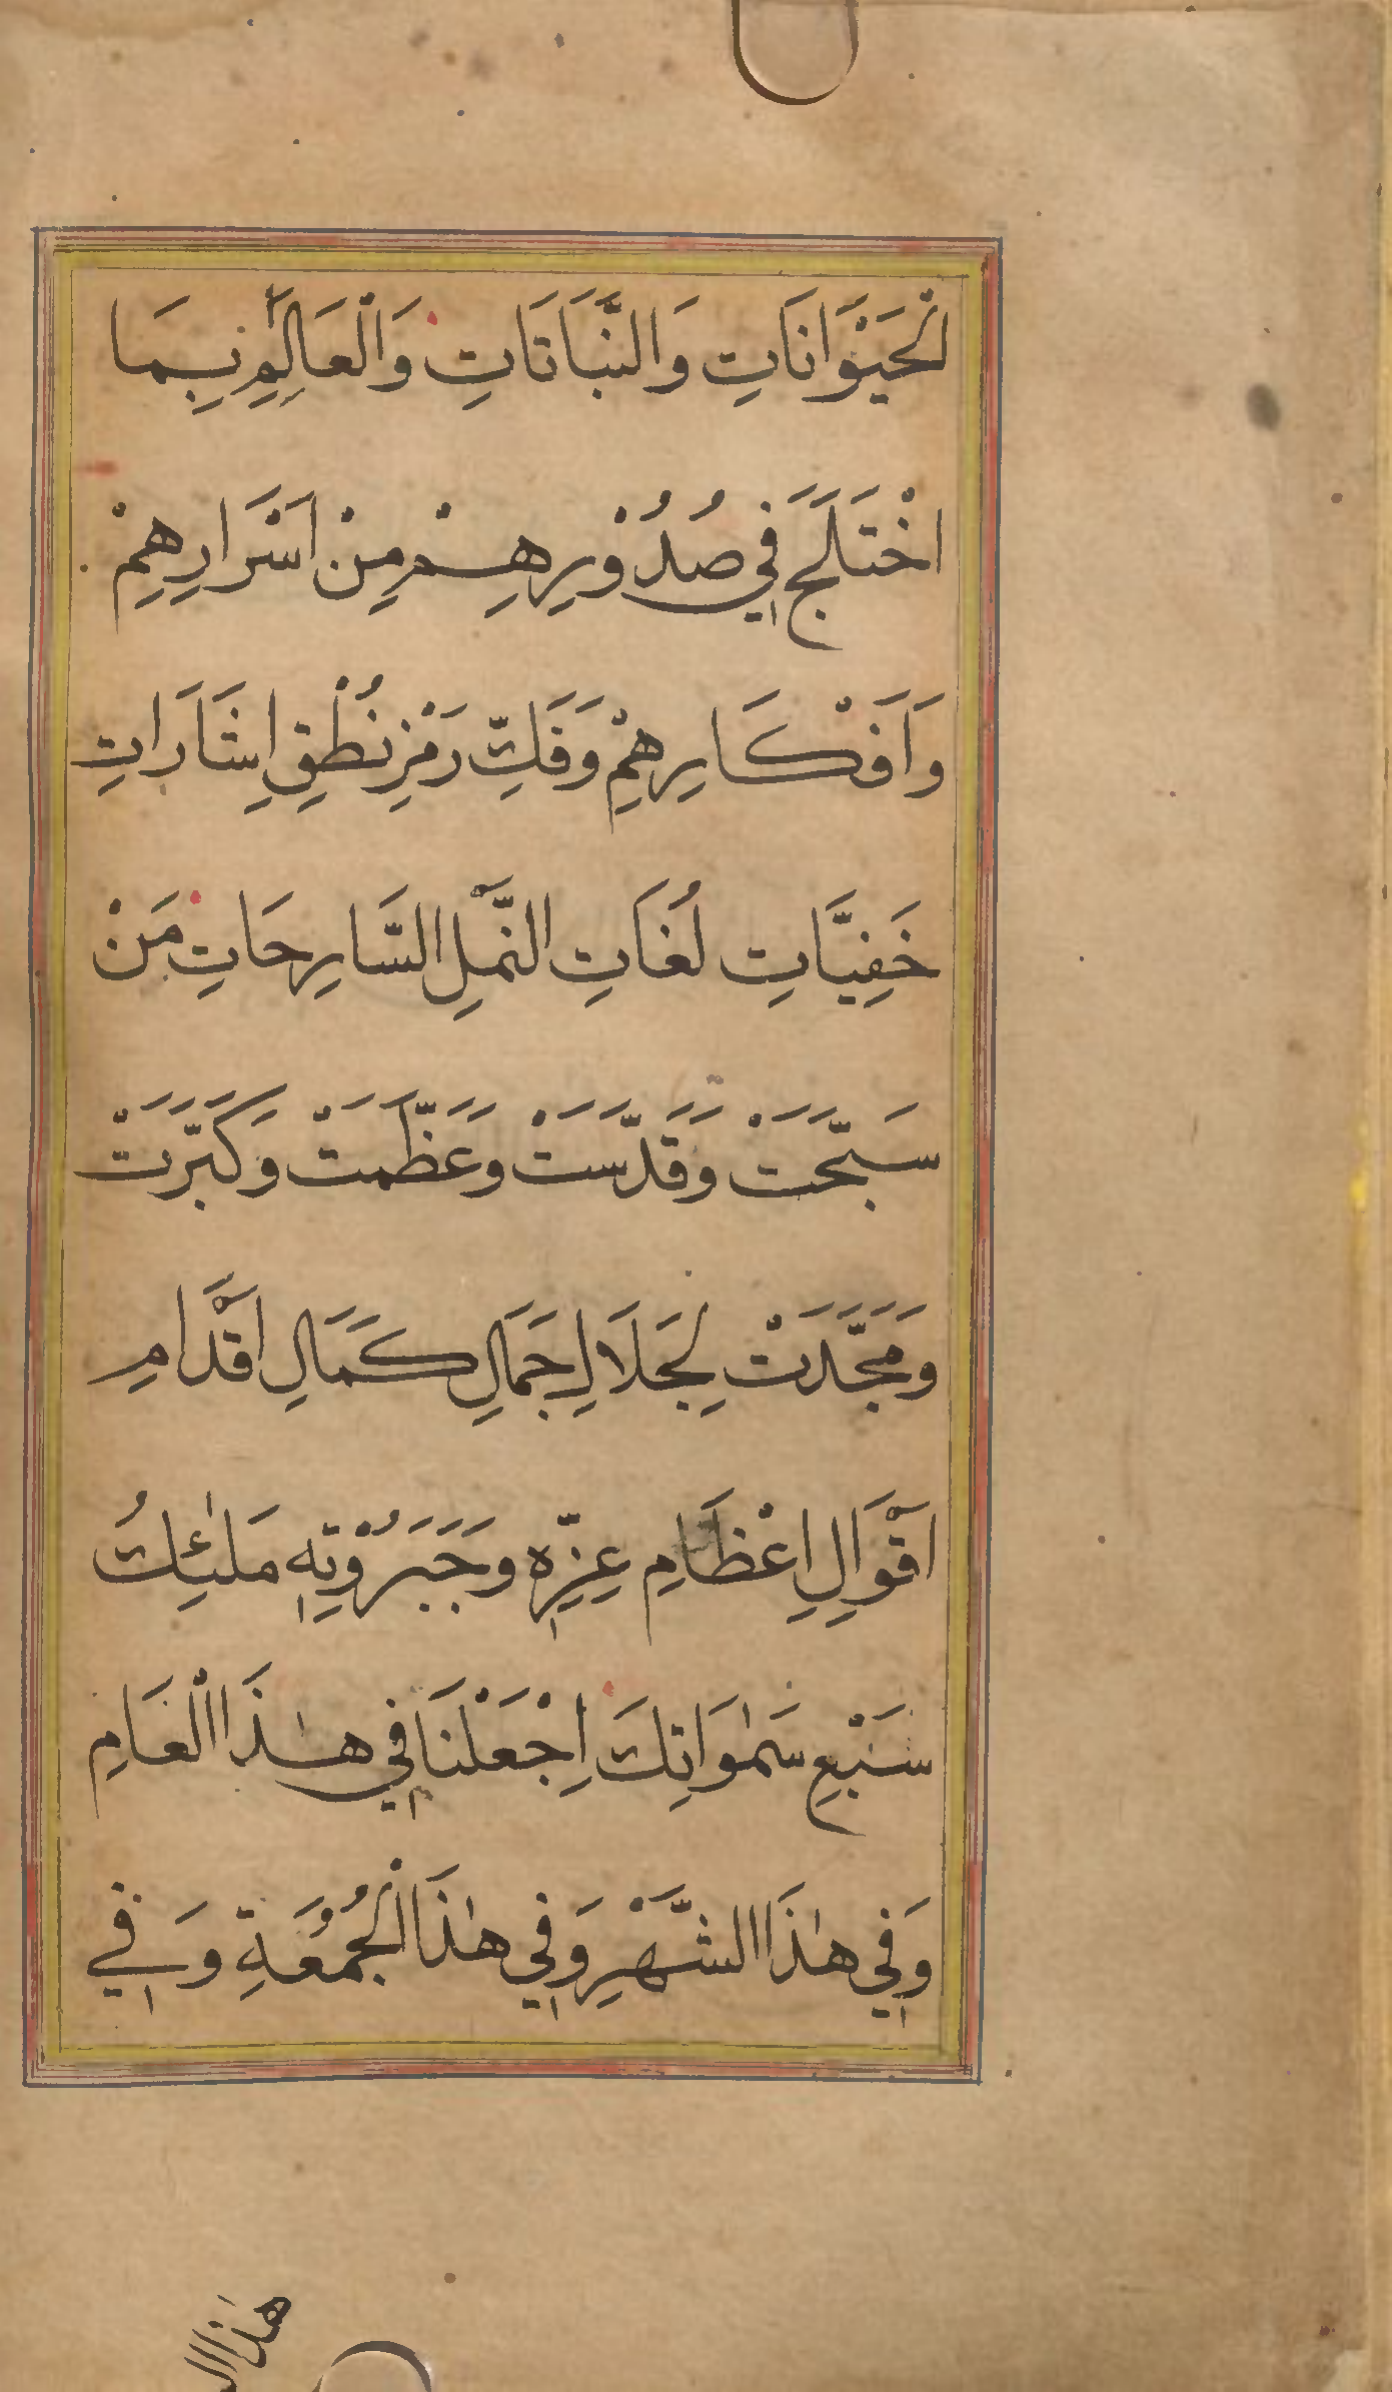 الْحَيْوَانَاتِ وَالنَّبَاتَاتِ وَالْعَالِمِ بِمَا
اخْتَلَجَ فِي صُدُوْرِهِمْ مِنْ اَسْرَارِهِمْ
وَاَفْكَارِهِمْ وَفَكِّ رَمْزِ نُطْقِ اِشَارَاتِ
خَفِيَّاتِ لُغَاتِ النَّمْلِ السَّارِحَاتِ مَنْ
سَبَّحَتْ وَقَدَّسَتْ وَعَظَّمَتْ وَكَبَّرَتْ
وَمَجَّدَتْ لِجَلَالِ جَمَالِ كَمَالِ اَقْدَامِ
اَقْوَالِ اِعْظَامِ عِزِّهِ وَجَبَرُوْتِهِ مَلٰئِكَتُ
سَبْعِ سَمٰوَاتِكَ اِجْعَلْنَا فِي هٰذَا الْعَامِ
وَفِي هٰذَا الشَّهْرِ وَفِي هٰذَا الْجُمُعَةِ وَفِي